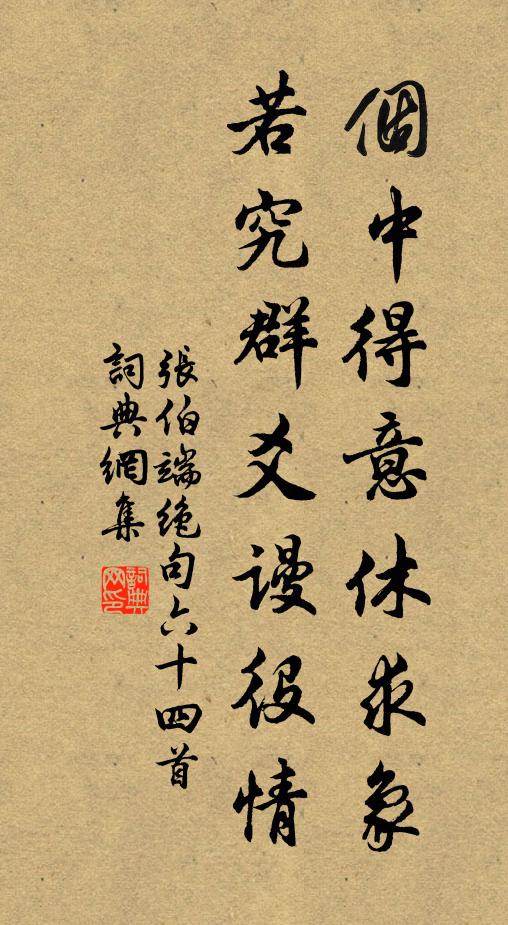 個中得意休求象
若究群爻謾役情
張伯端絶句六十四首
詞典網集
詞典
网印